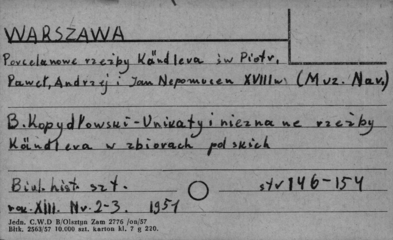 WARSZAWA
Porcelanowe rzeźby Kändlera św Piotr,
Paweł, Andrzej i Jan Nepomucen XVIIIw. (Muz. Nar.)
B. Kopydłowski - Unikaty i nieznane rzeźby
Kändlera w zbiorach polskich
Biul. hist. szt. str 146-154
rok. XIII. Nr. 2-3. 1951
Jedn. C.W.D B/Olsztyn Zam 2776 /on/57
Błtk. 2563/57 10.000 szt. karton kl. 7 g 220.